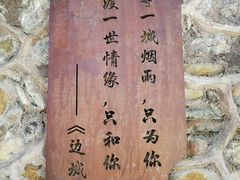 等一城烟雨,只为你
渡一世情缘,只和你
——《边城